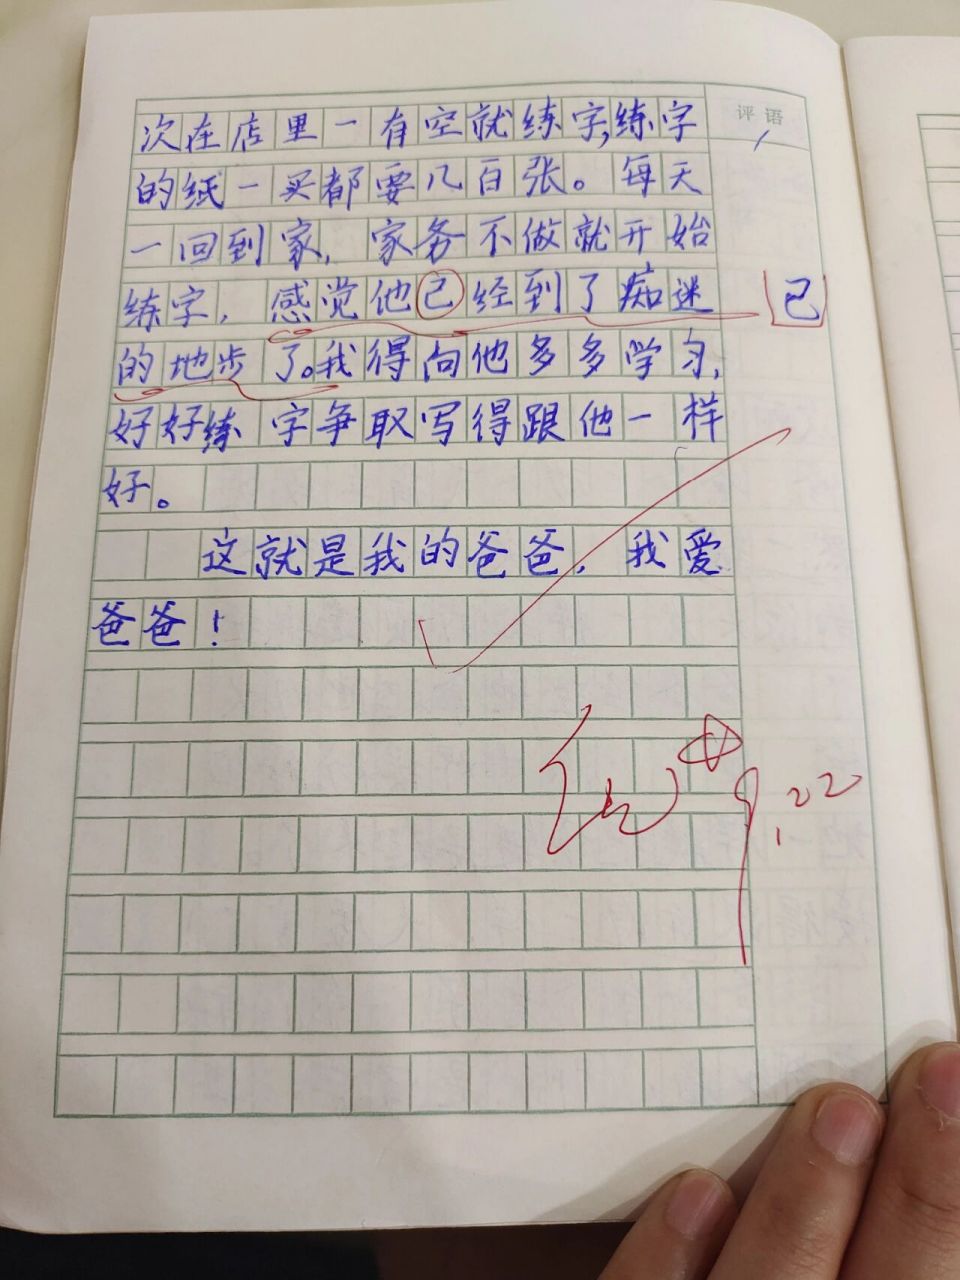 评语
次在店里一有空就练字,练字
的纸一买都要几百张。每天
一回到家,家务不做就开始
练字,感觉他己经到了痴迷
已
的地步了。我得向他多多学习,
好好练字争取写得跟他一样
好。
这就是我的爸爸,我爱
爸爸!
9.22